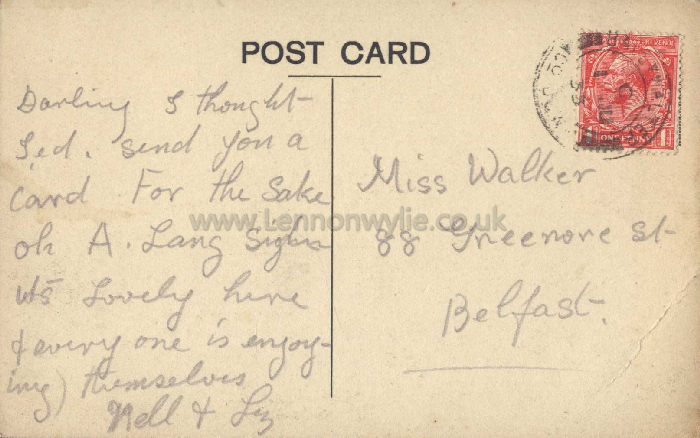 POST CARD
Darling I thought
I,ed. send you a
Card For the Sake
oh A. Lang Syne
its Lovely here
& every one is enjoy-
ing) themselves
Nell & Liz
Miss Walker
88 Greenore St
Belfast.
www.Lennonwylie.co.uk
ONE PENNY